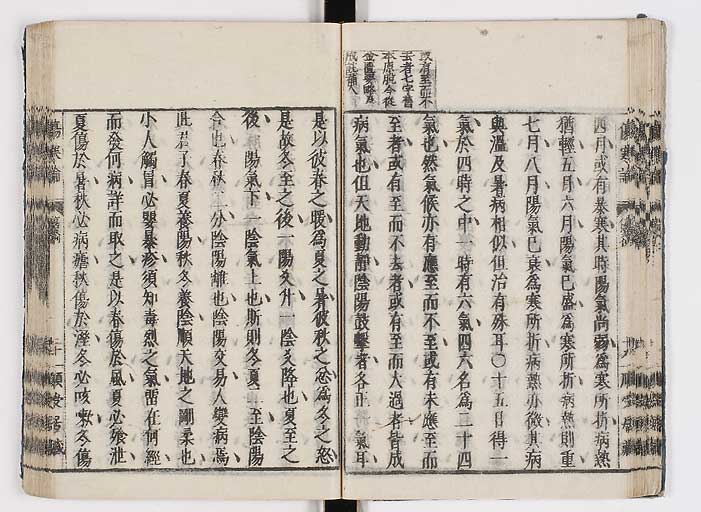 四月或有暴寒其時陽氣尚弱爲寒所折病熱
猶輕五月六月陽氣已盛爲寒所折病熱則重
七月八月陽氣已衰爲寒所折病熱亦微其病
與溫及暑病相似但治有殊耳〇十五日得一
氣於四時之中一時有六氣四六名爲二十四
氣也然氣候亦有應至而不至或有未應至而
至者或有至而不去者或有至而太過者皆成
病氣也但天地動靜陰陽鼓擊者各正一氣耳
或有至而不
去者七字舊
本原脫今從
金匱要略及
成註補入
是以彼春之暖爲夏之暑彼秋之忿爲冬之怒
是故冬至之後一陽爻升一陰爻降也夏至之
後一陽氣下一陰氣上也斯則冬夏二至陰陽
合也春秋二分陰陽離也陰陽交易人變病焉
此君子春夏養陽秋冬養陰順天地之剛柔也
小人觸冒必嬰暴疹須知毒烈之氣留在何經
而發何病詳而取之是以春傷於風夏必飱泄
夏傷於暑秋必病瘧秋傷於溼冬必咳嗽冬傷
傷寒論